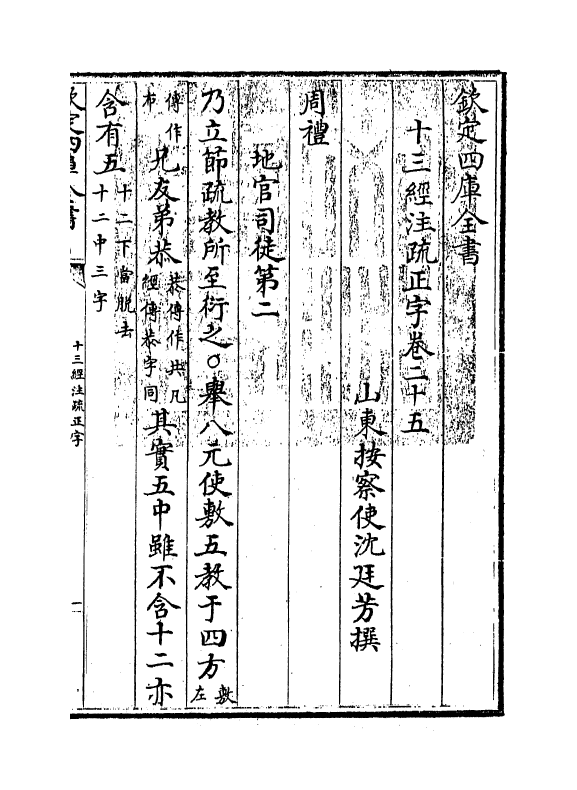 欽定四庫全書
十三經注疏正字卷二十五
山東按察使沈廷芳撰
周禮
地官司徒第二
乃立節疏教所至衍之○舉八元使敷五教于四方敷左
傳作布兄友弟恭恭傳作共凡經傳恭字同其實五中雖不含十二亦
含有五十二下當脫去十二中三字
欽定四庫全書
十三經注疏正字
一